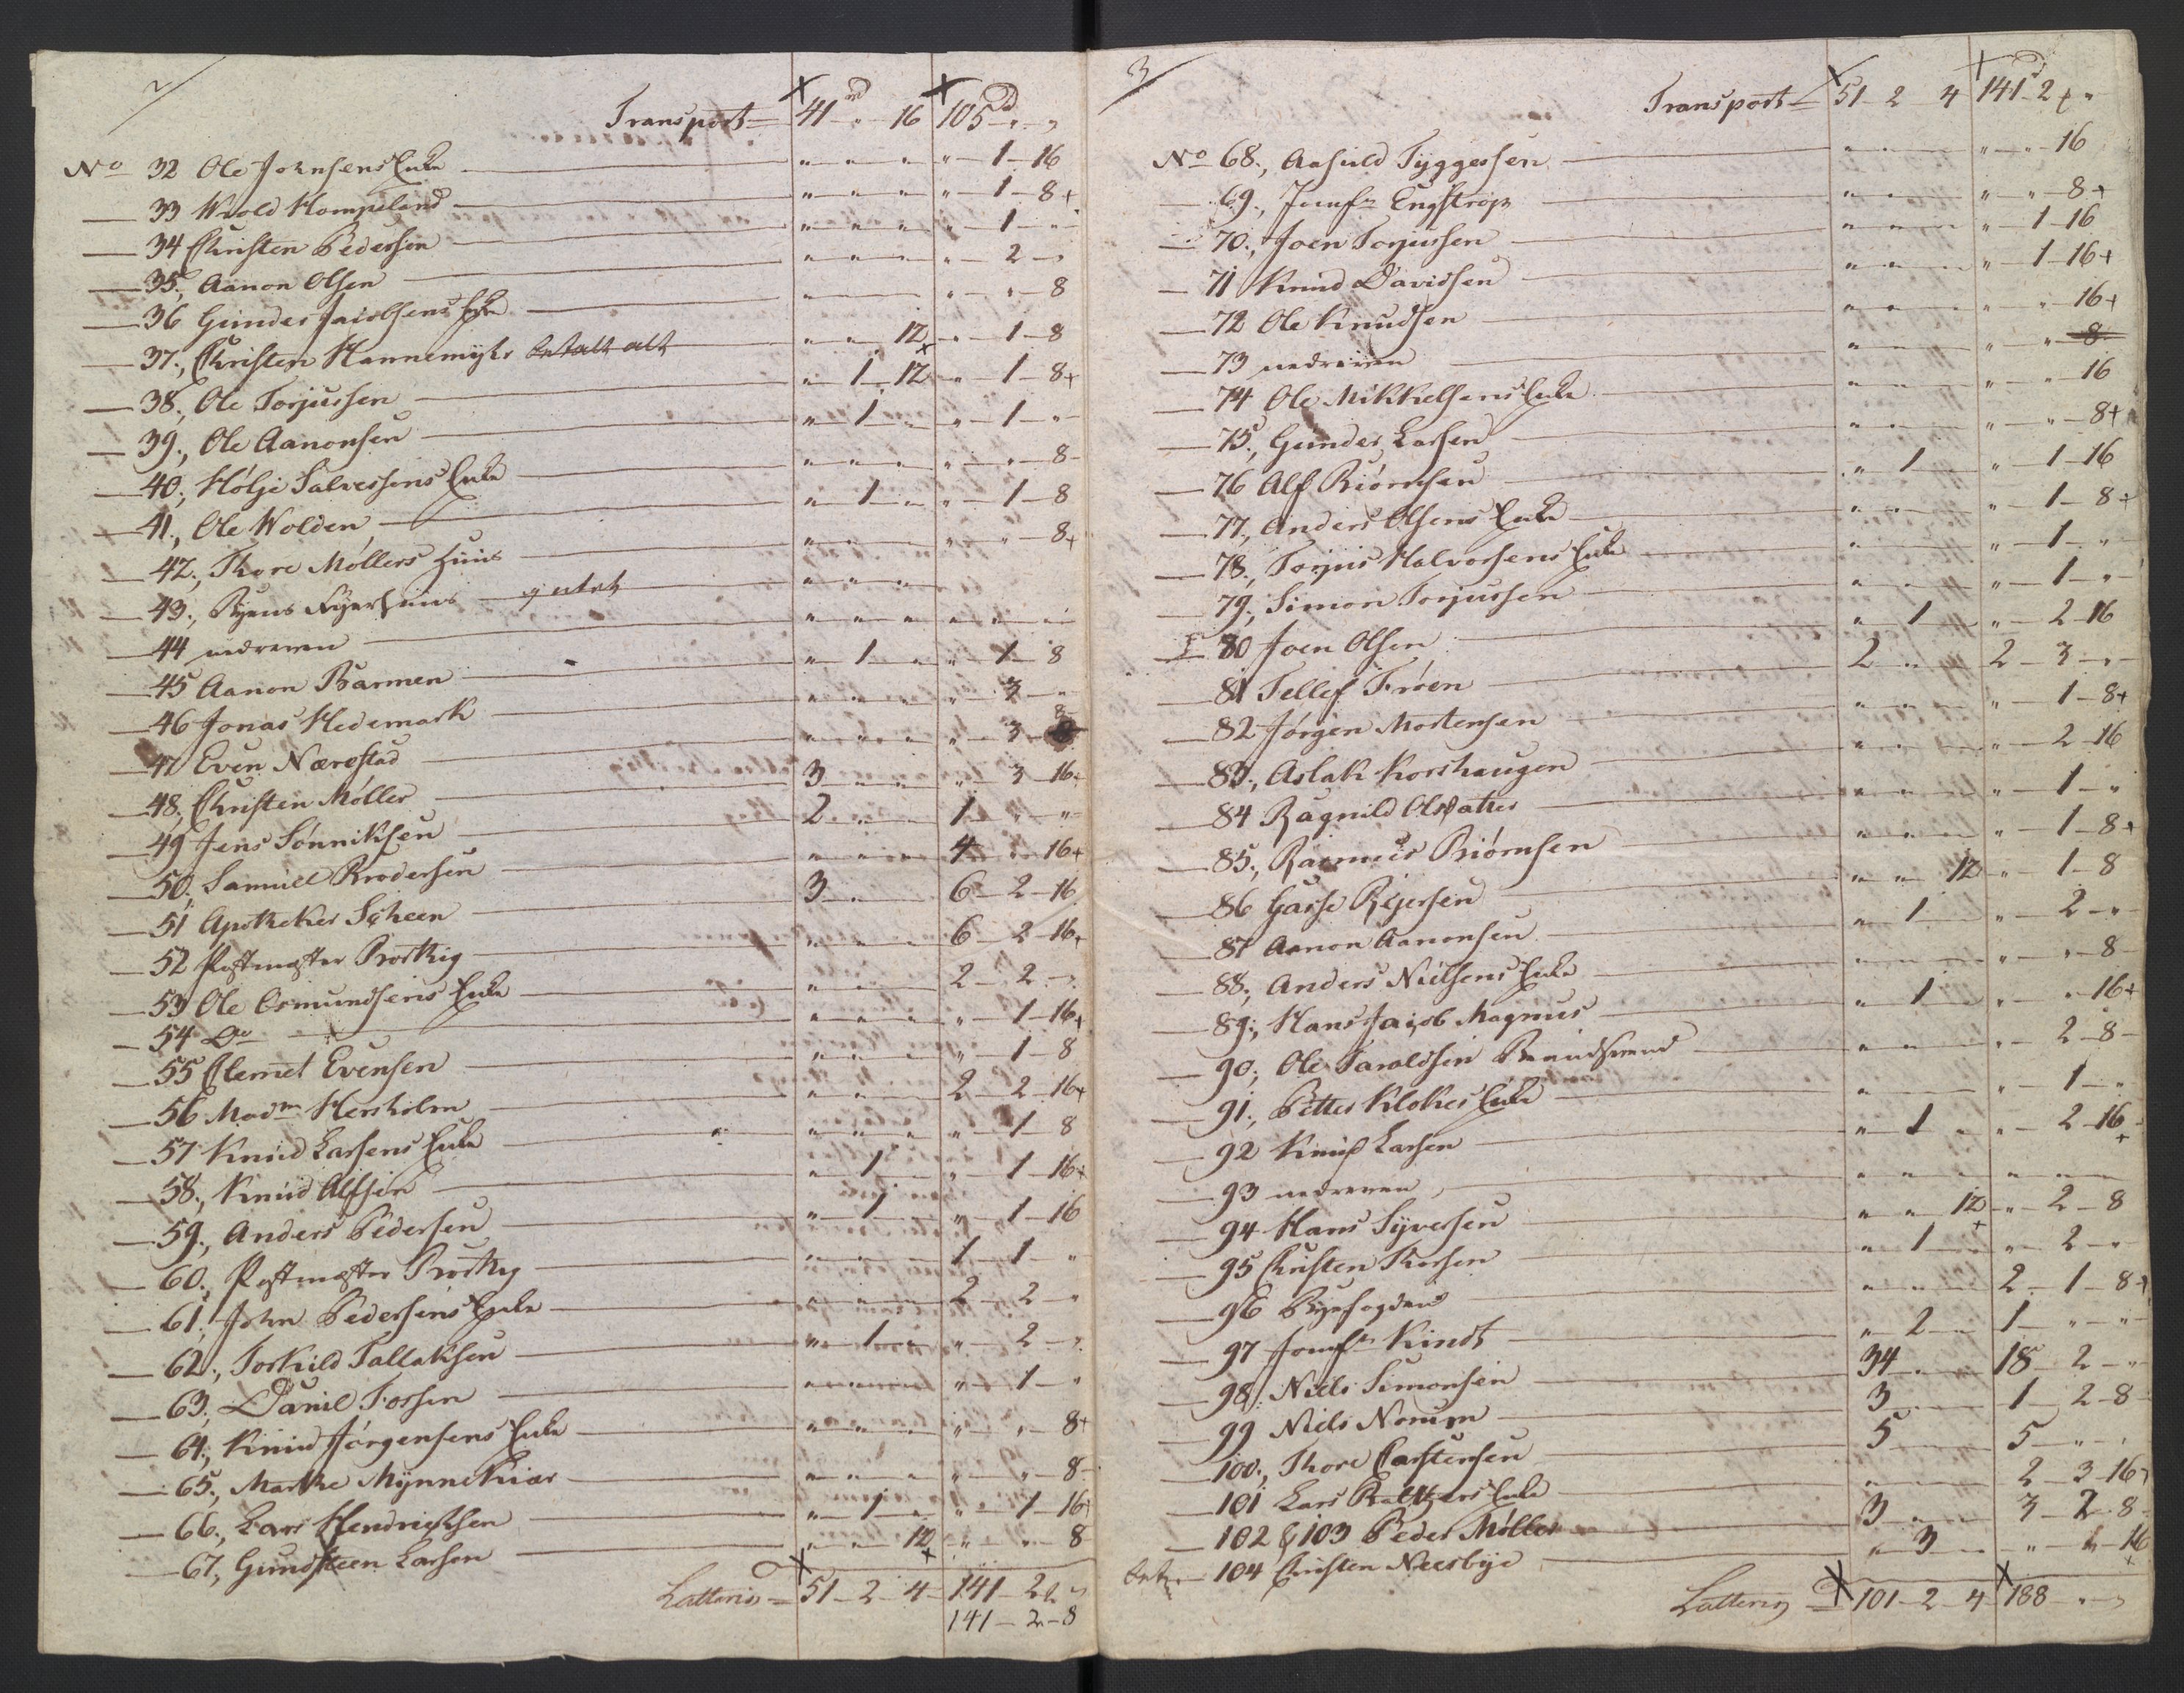 2/
Transport = 41 rd " 16 105 d " "
No 32 Ole Johnsens Enke " " " " 1 - 16
33 Wold Hompeland " " " " 1 - 8 +
34 Christen Pedersen " " " " 1 "
35., Aanon Olsen " " " " 2 "
36 Gunder Jacobsens Enke " " 8
37., Christen Hannemyhr betalt alt " " 12 + " 1 - 8
38., Ole Torjussen " 1 - 12 " 1 - 8 +
39., Ole Aanonsen " 1 " " 1 "
40., Hølje Salvessens Enke " " " " " 8
41., Ole Wolden, " 1 " " 1 - 8
42., Thore Møllers Huus " " " " " 8 +
43., Byens Sprøithuus intet " " "
44 nedreven " " " " " "
45 Aanon Barmen " 1 " " 1 - 8
46 Jonas Hedemark " " " " 3 "
47 Even Nærestad " " " " 3 - 8
48., Christen Møller 3 " " " 3 - 16
49 Jens Sønniksen 2 " " 1 " "
50., Samuel Brodersen " " " 4 " 16 +
51 Apotheker Scheen 3 " 6 - 2 - 16
52 Postmester Brothig " " " 6 - 2 - 16 +
53 Ole Osmundsens Enke " " 2 - 2 "
54 Do " " " " 1 - 16 +
55 Clemet Evensen " " " " 1 - 8
56 Madm Hersholm " " 2 - 2 - 16 +
57 Knud Larsens Enke " " " " 1 - 8
58., Knud Alfsen " 1 " 1 - 16 +
59., Anders Pedersen " 1 " 1 - 16
60., Postmester Brothig " " " 1 - 1 "
61., John Pedersens Enke " " " 2 - 2 "
62., Torkild Tallaksen " 1 " " 2 "
63., Daniel Fossen " " 1 "
64., Knud Jørgensens Enke " " " " " 8 +
65., Marthe Mynnekiær " " " " " 8
66., Lars Hendrichsen " 1 " " 1 - 16 +
67, Gundsteen Larsen " " 12 + " " 8
Latteris = 51 - 2 - 4 - 141 - 2 "
141 - 2 - 8
3/
Transport = 51 - 2 4 141 d - 2 "
No 68., Aasuld Tyggessen " " " " 16
69., Jomfr Engstrøp " " " " 8 +
70., Joen Torjussen " " " " 1 - 16
71 Knud Davidsen " " " " 1 - 16 +
72 Ole Knudsen " " " " " 16 +
73 nedreven " " " 8
74 Ole Mikkelsens Enke " " " " 16
75., Gunder Larsen " " " " 8 +
76 Alf Biørnsen " 1 " 1 - 16
77., Anders Olsens Enke " " " 1 - 8 +
78., Torjus Halvorsens Enke " " 1 "
79., Simon Torjussen " " " 1 "
80 Joen Olsen " 1 " 2 - 16
81 Tellef Froen 2 " 2 - 3 "
82 Jørgen Mortensen " " " 1 - 8 +
83., Aslak Korshaugen " " " 2 - 16
84 Ragnild Olsdatter " " " " 1 "
85., Rasmus Biørnsen " " " " 1 - 8 +
86 Gasse Rejersen " " 12 " 1 - 8
87 Aanon Aanonsen " 1 " 2 "
88., Anders Nielsens Enke " " " " " 8
89., Hans Jacob Magnus " 1 " " 16 +
90., Ole Taraldsen " " " 2 - 8
91., Petter Klokers Enke " " 1 "
92 Knud Larsen " 1 " " 2 - 16 +
93 nedreven " " " " " "
94 Hans Syversen " " 12 + " 2 - 8
95 Christen Thorsen " 1 " " 2 "
96 Byefogden " " " 2 - 1 - 8 +
97 Jomfr Kindt " 2 1 " "
98., Niels Simonsen 34 18 - 2 "
99 Niels Norum 3 1 - 2 - 8
100., Thore Carstensen 5 5 " "
101 Lars Baltzers Enke " 2 - 3 - 16 +
102 & 103 Peder Møller 3 3 - 2 - 8
104 Christen Neersbye " 3 " " 16 +
Latteris = 101 - 2 - 4 188 " "